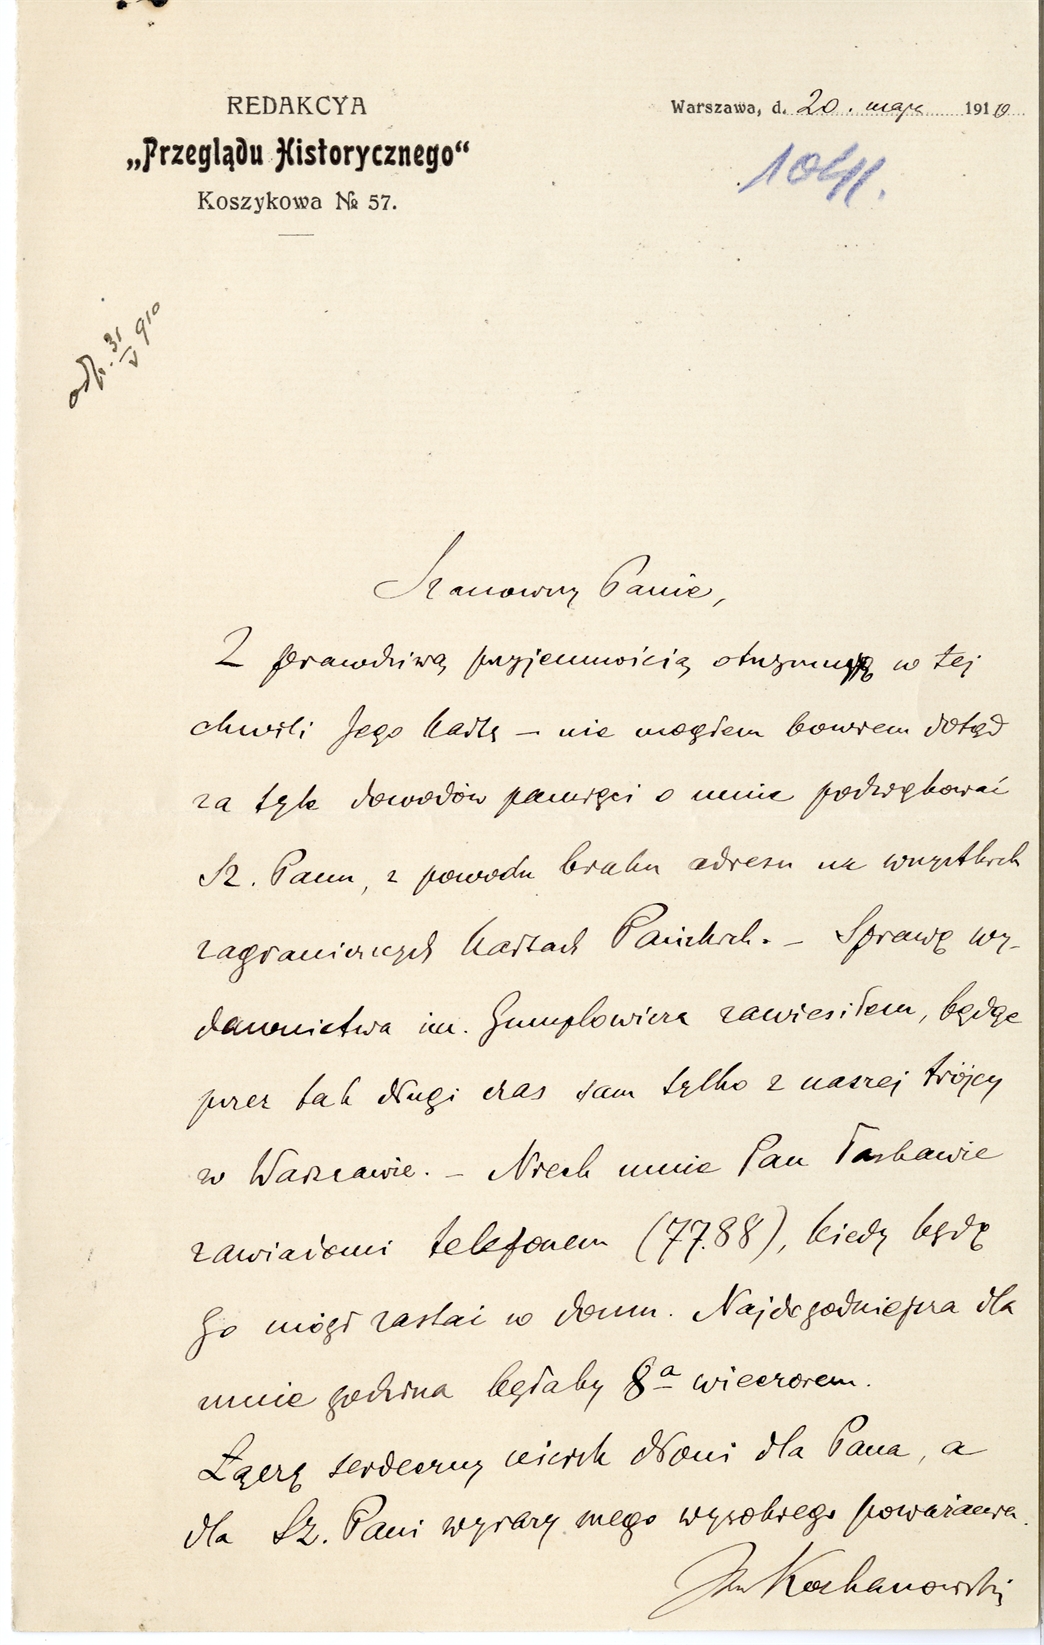 REDAKCYA
„Przeglądu Historycznego“
Koszykowa № 57.
Warszawa, d. 20. maja 1910
1041.
odp. 31/V 910
Szanowny Panie,
Z prawdziwą przyjemnością otrzymuję w tej
chwili Jego kartę – nie mogłem bowiem dotąd
za tyle dowodów pamięci o mnie podziękować
Sz. Panu, z powodu braku adresu na wszystkich
zagranicznych kartach Pańskich. – Sprawę wy-
dawnictwa im. Gumplowicza zawiesiłem, będąc
przez tak długi czas sam tylko z naszej trójcy
w Warszawie. – Niech mnie Pan łaskawie
zawiadomi telefonem (77.88), kiedy będę
Go mógł zastać w domu. Najdogodniejsza dla
mnie godzina byłaby 8ª wieczorem.
Łączę serdeczny uścisk dłoni dla Pana, a
dla Sz. Pani wyrazy mego wysokiego poważania.
JKKochanowski